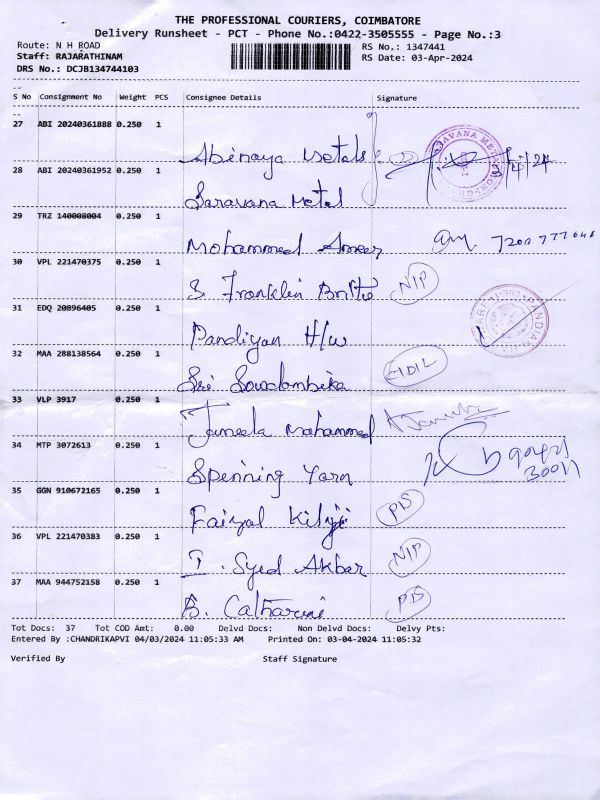 THE PROFESSIONAL COURIERS, COIMBATORE
Delivery Runsheet - PCT - Phone No.:0422-3505555 - Page No.:3
Route: N H ROAD
RS No.: 1347441
Staff: RAJARATHINAM
RS Date: 03-Apr-2024
DRS No.: DCJB134744103
S No Consignment No Weight PCS Consignee Details Signature
27 ABI 20240361888 0.250 1
Abinaya Metals
3/4/24
28 ABI 20240361952 0.250 1
Saravana Metal
29 TRZ 140008004 0.250 1
Mohammed Ameer
30 VPL 221470375 0.250 1
S Franklin NIP
31 EDQ 20896405 0.250 1
Pandiyan H/w
32 MAA 288138564 0.250 1
Sri Sowdambika
33 VLP 3917 0.250 1
Jameela Mohammed
34 MTP 3072613 0.250 1
Spenning Yarn
35 GGN 910672165 0.250 1
Faizal
36 VPL 221470383 0.250 1
I. Syed Akbar NIP
37 MAA 944752158 0.250 1
B. Catharine
Tot Docs: 37 Tot COD Amt: 0.00 Delvd Docs: Non Delvd Docs: Delvy Pts:
Entered By :CHANDRIKAPVI 04/03/2024 11:05:33 AM Printed On: 03-04-2024 11:05:32
Verified By Staff Signature